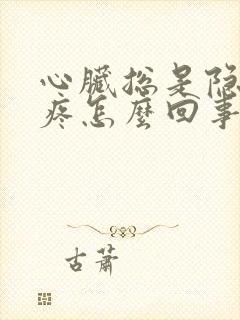 心臟总是隐
疼怎麼回事
古蕭